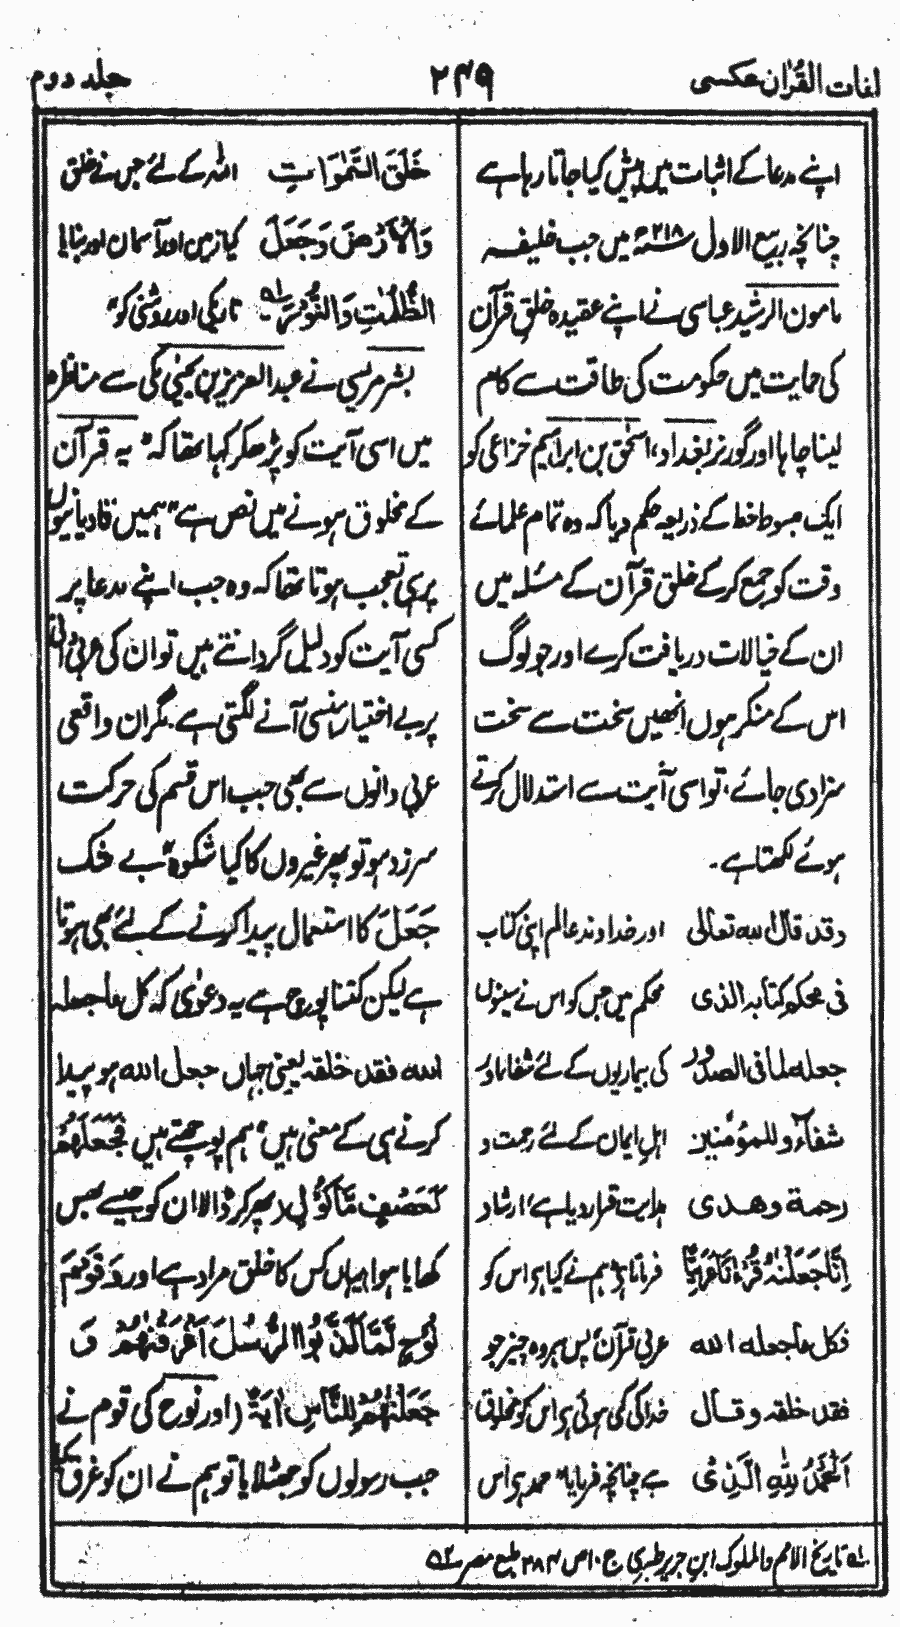 لغات القرآن عکسی ۲۴۹ جلد دوم
اپنے مدعا کے اثبات میں پیش کیا جاتا رہا ہے
چنانچہ ربیع الاول ۲۱۸ھ میں جب خلیفہ
مامون الرشید عباسی نے اپنے عقیدہ خلقِ قرآن
کی حمایت میں حکومت کی طاقت سے کام
لینا چاہا اور گورنر بغداد، اسحٰق بن ابراہیم خزاعی کو
ایک مبسوط خط کے ذریعہ حکم دیا کہ وہ تمام علمائے
وقت کو جمع کرکے خلق قرآن کے مسئلہ میں
ان کے خیالات دریافت کرے اور جو لوگ
اس کے منکر ہوں انھیں سخت سے سخت
سزا دی جائے، تو اسی آیت سے استدلال کرتے
ہوئے لکھتا ہے۔
وقد قال الله تعالى اور خداوند عالم اپنی کتاب
فی محکم کتابه الذی محکم میں جس کو اس نے سینوں
جعله لما فی الصدور کی بیماریوں کے لئے شفا بنادئے
شفآء وللمؤمنین اہل ایمان کے لئے رحمت و
رحمة وهدی ہدایت قرار دیا ہے، ارشاد
اِنَّا جَعَلْنٰهُ قُرْءٰنًا عَرَبِيًّا فرمانا ہے ہم نے کیا ہے اس کو
فکل ماجعله الله عربی قرآن پس ہر وہ چیز جو
فقد خلقه وقال خدا کی کی ہوئی ہے اس کو مخلوق
اَلْحَمْدُ لِلّٰهِ الَّذِیْ ہے چنانچہ فرمایا، حمد ہے اس
خَلَقَ السَّمٰوَاتِ اللہ کے لئے جس نے خلق
وَالْاَرْضَ وَجَعَلَ کیا زمین اور آسمان اور بنایا
الظُّلُمٰتِ وَالنُّوْرَ تاریکی اور روشنی کو"
بشر مریسی نے عبدالعزیز بن یحییٰ مکی سے مناظرہ
میں اسی آیت کو پڑھکر کہا تھا کہ " یہ قرآن
کے مخلوق ہونے میں نص ہے" ہمیں قادیانیوں
پر ہی تعجب ہوتا تھا کہ وہ جب اپنے مدعا پر
کسی آیت کو دلیل گردانتے ہیں تو ان کی عربی دانی
پر بے اختیار ہنسی آنے لگتی ہے۔ مگر ان واقعی
عربی دانوں سے بھی جب اس قسم کی حرکت
سرزد ہو تو پھر غیروں کا کیا شکوہ، بے شک
جَعَلَ کا استعمال پیدا کرنے کے لئے بھی ہوتا
ہے لیکن کتنا پوچ ہے یہ دعویٰ کہ کل ماجعله
الله فقد خلقه یعنی جہاں جعل الله ہو پیدا
کرنے ہی کے معنی ہیں، ہم پوچھتے ہیں فَجَعَلَهُمْ
كَعَصْفٍ مَّاْكُوْلٍ (پھر کر ڈالا ان کو جیسے بھس
کھایا ہوا) یہاں کس کا خلق مراد ہے اور وَقَوْمَ
نُوْحٍ لَّمَّا كَذَّبُوا الرُّسُلَ اَغْرَقْنٰهُمْ وَ
جَعَلْنٰهُمْ لِلنَّاسِ اٰيَةً (اور نوح کی قوم نے
جب رسولوں کو جھٹلایا تو ہم نے ان کو غرق کیا
۱ تاریخ الامم والملوک ابن جریر طبری ج ۱۰ ص ۲۸۴ طبع مصر